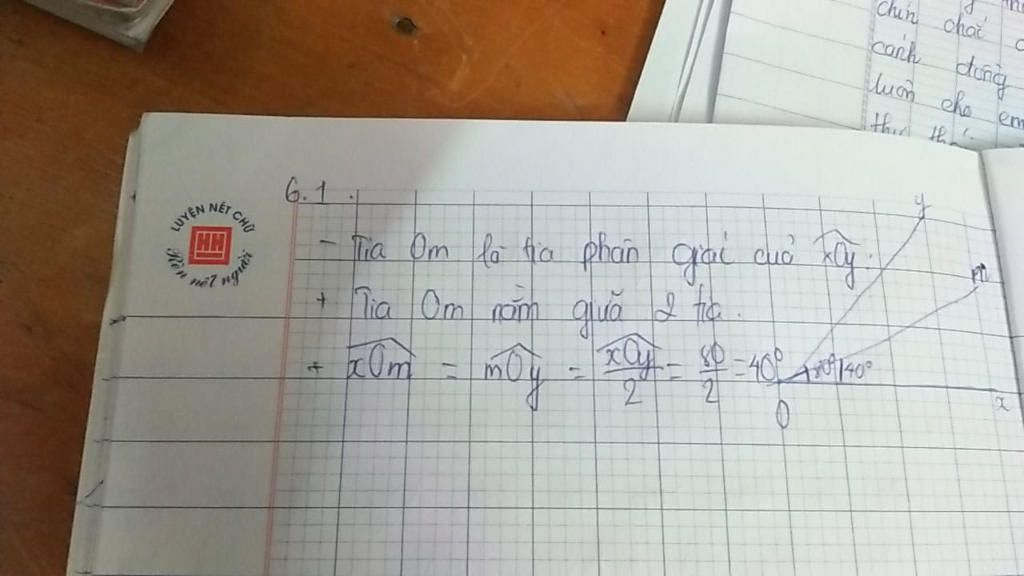 chín chới
cảnh đồng
luôn cho em
LUYỆN NẾT CHỮ
HH
Rèn nết người
6.1.
- Tia Om là tia phân giác của xOy.
+ Tia Om nằm giữa 2 tia.
+ xOm = mOy = xOy/2 = 80/2 = 40°
y
m
40°
x
O